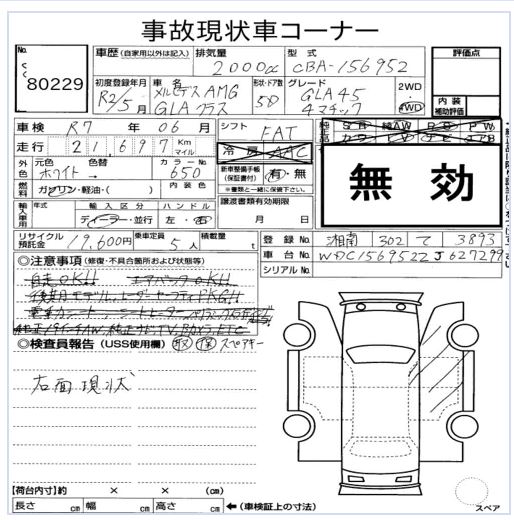 事故現状車コーナー
No. 80229
車歴 (自家用以外は記入) 排気量 2000cc 型式 CBA-156952 評価点
初度登録年月 R2/5月 車名 メルセデスAMG GLAクラス 形状・ドア数 5D グレード GLA45 4マチック 2WD・4WD 内装補助評価
車検 R7年06月 シフト FAT
走行 21,697 Km マイル 冷房 AAC
外色 元色 ホワイト 色替 カラーNo. 650 新車整備手帳(保証書付) 有・無
燃料 ガソリン・軽油・( ) 内装色 ※書類と一緒に保管下さい。
無効
輸入車用 年式 輸入区分 ディーラー・並行 ハンドル 左・右 譲渡書類有効期限 月 日
リサイクル預託金 19,600円 乗車定員 5人 積載量 t 登録No. 湘南 302 て 3893
◎注意事項 (修復・不具合箇所および状態等) 車台No. WDC1569522J627299
シリアルNo.
自走OKH エアバックOKH
後期モデル、レーダーセーフティPKGH
純正17インチAW,純正ナビ,TV,Bカメラ,ETC
◎検査員報告 (USS使用欄) 取 保 スペアキー
右面現状
【荷台内寸】約 × × (cm)
長さ cm 幅 cm 高さ cm ←(車検証上の寸法)
スペア